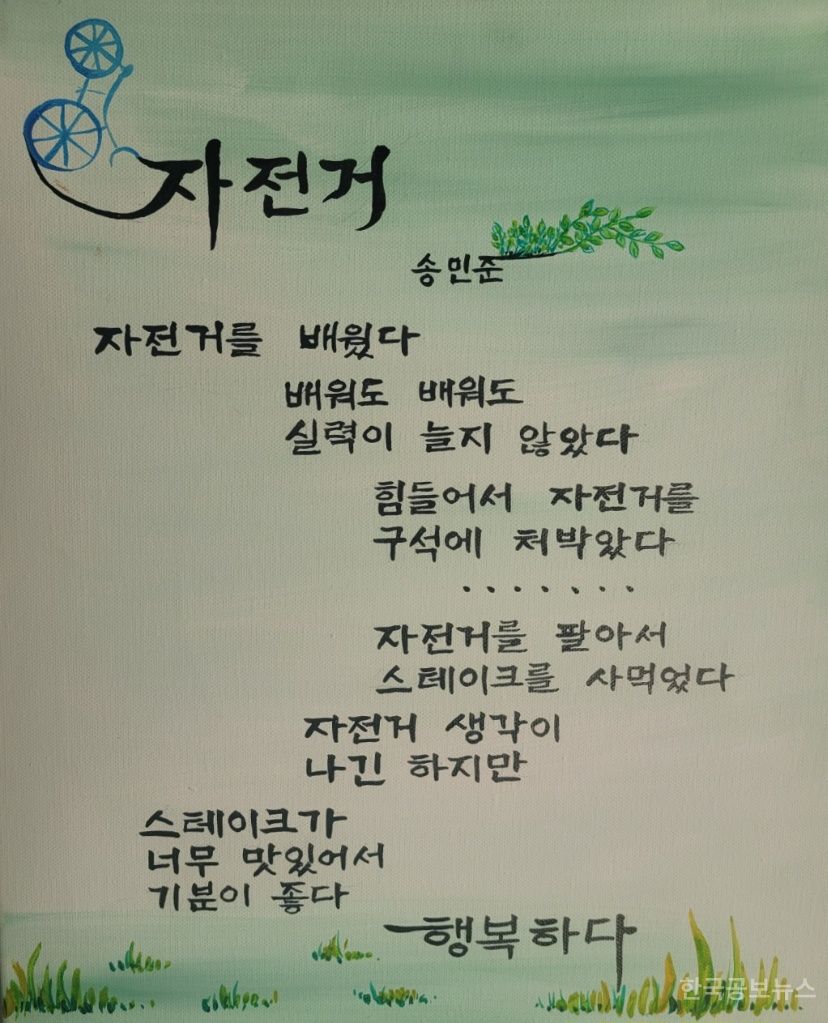 자전거
송민준
자전거를 배웠다
배워도 배워도
실력이 늘지 않았다
힘들어서 자전거를
구석에 처박았다
.......
자전거를 팔아서
스테이크를 사먹었다
자전거 생각이
나긴 하지만
스테이크가
너무 맛있어서
기분이 좋다
행복하다
한국공보뉴스